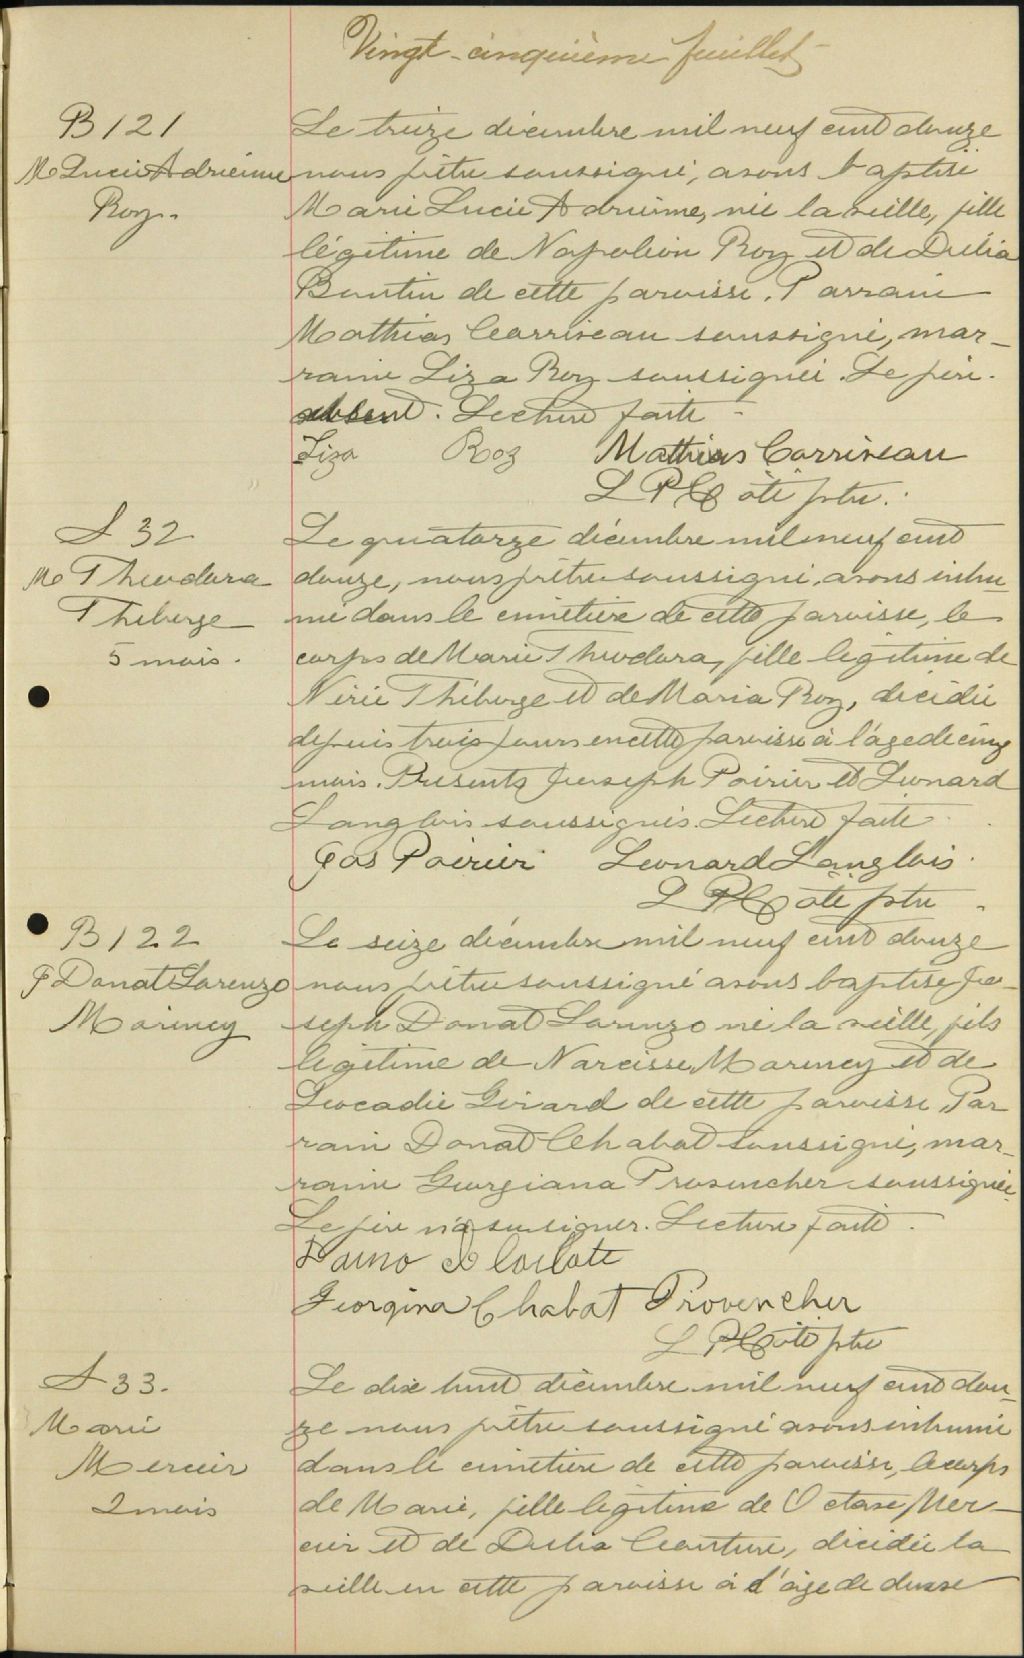 Vingt-cinquième feuillet
B 121
M Lucie Adrienne
Roy.
Le treize décembre mil neuf cent douze
nous prêtre soussigné, avons baptisé
Marie Lucie Adrienne, née la veille, fille
légitime de Napoléon Roy et de Délia
Boutin de cette paroisse. Parrain
Mathias Carriveau soussigné, mar-
raine Liza Roy soussignée. Le père
absent. Lecture faite
Liza Roy Mathias Carriveau
L P Côté ptre.
S 32
M Theodora
Theberge
5 mois.
Le quatorze décembre mil neuf cent
douze, nous prêtre soussigné, avons inhu-
mé dans le cimetière de cette paroisse, le
corps de Marie Theodora, fille légitime de
Nérée Théberge et de Maria Roy, décédée
depuis trois jours en cette paroisse à l'âge de cinq
mois. Presents Joseph Poirier et Leonard
Langlois soussignés. Lecture faite.
Jos Poirier Leonard Langlois.
L P Côté ptre
B 122
J Donat Lorenzo
Marincy
Le seize décembre mil neuf cent douze
nous prêtre soussigné avons baptisé Jo-
seph Donat Lorenzo né la veille, fils
légitime de Narcisse Marincy et de
Leocadie Girard de cette paroisse. Par
rain Donat Chabot soussigné, mar-
raine Georgiana Provencher soussignée
Le père n'a su signer. Lecture faite.
Georgina Chabot Provencher
L P Côté ptre
S 33.
Marie
Mercier
2 mois
Le dix huit décembre mil neuf cent dou-
ze nous prêtre soussigné avons inhumé
dans le cimetière de cette paroisse, le corps
de Marie, fille légitime de Octave Mer-
cier et de Delia Couture, décédée la
veille en cette paroisse à l'âge de deux